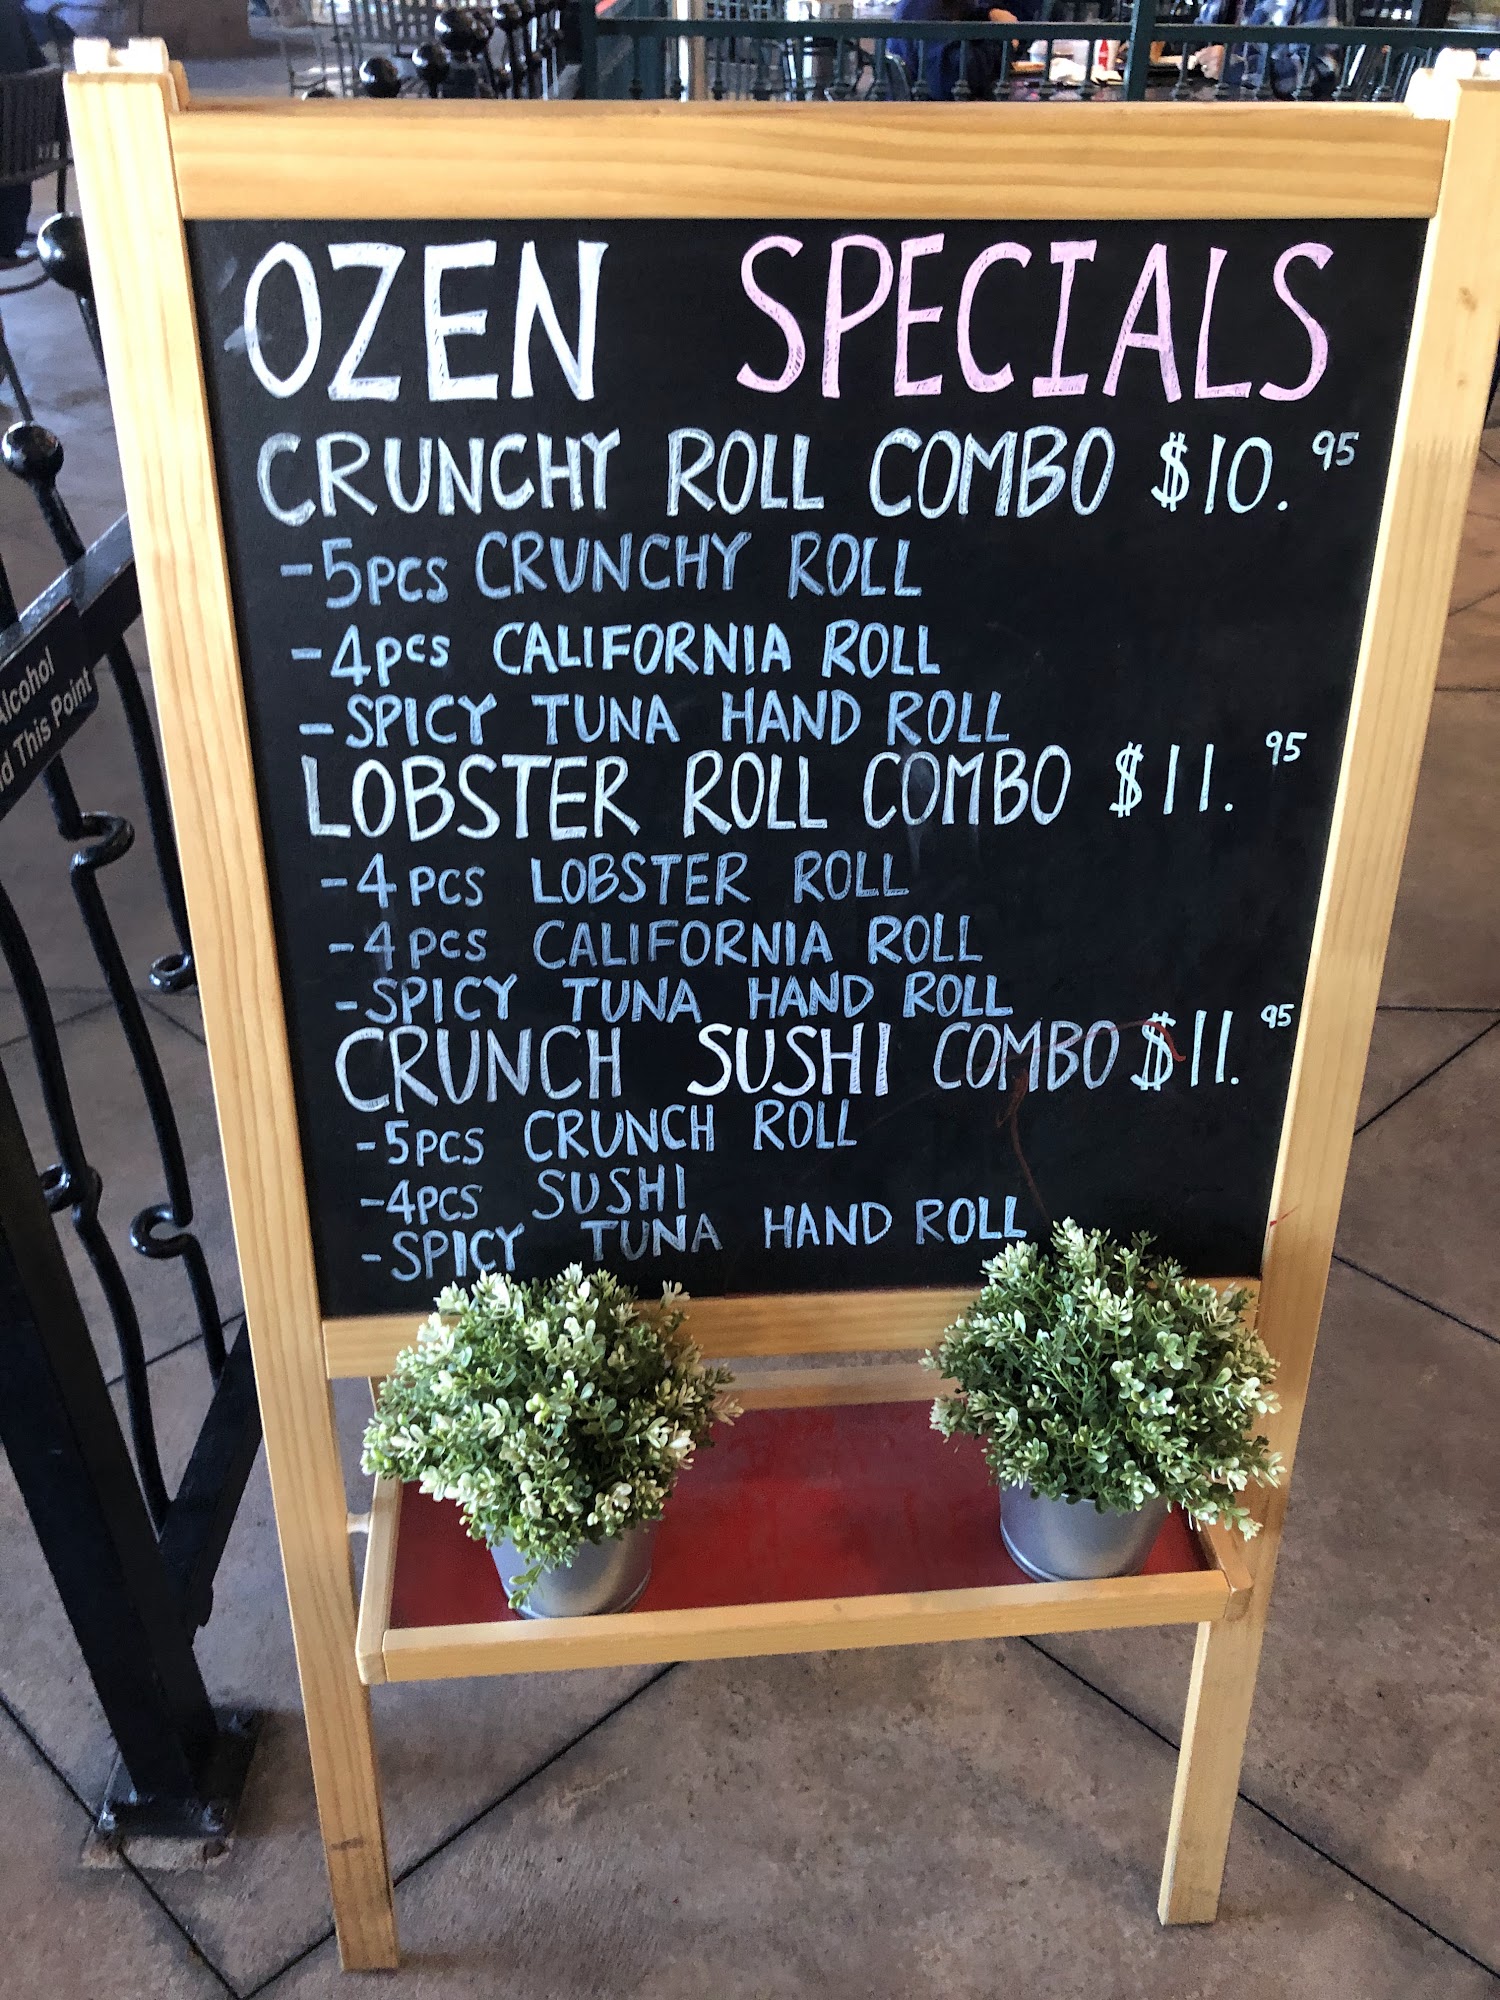 OZEN SPECIALS
CRUNCHY ROLL COMBO $10.95
-5pcs CRUNCHY ROLL
-4pcs CALIFORNIA ROLL
-SPICY TUNA HAND ROLL
LOBSTER ROLL COMBO $11.95
-4pcs LOBSTER ROLL
-4pcs CALIFORNIA ROLL
-SPICY TUNA HAND ROLL
CRUNCH SUSHI COMBO $11.95
-5pcs CRUNCH ROLL
-4pcs SUSHI
-SPICY TUNA HAND ROLL
Alcohol
This Point